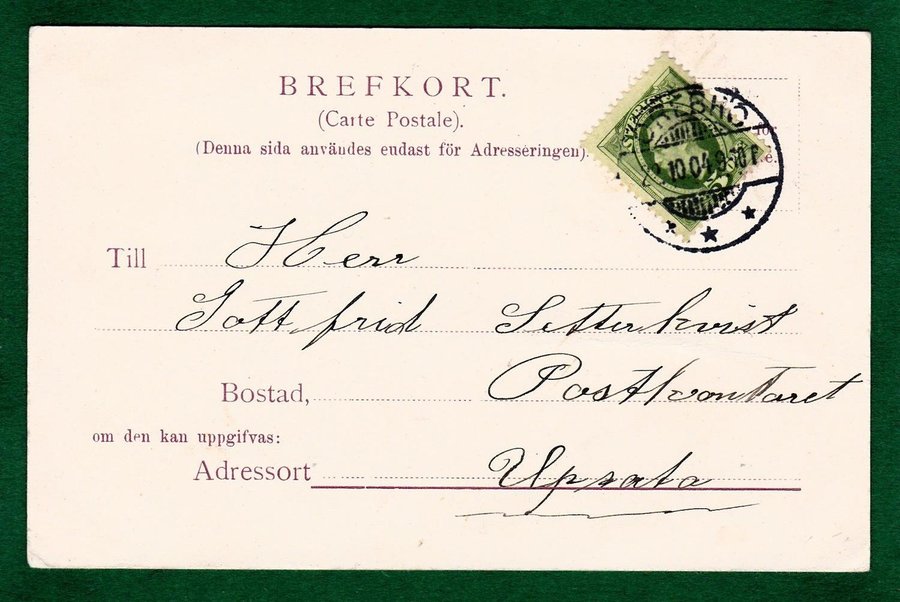 BREFKORT.
(Carte Postale).
(Denna sida användes endast för Adresseringen).
10.04.9
Till Herr
Gottfrid Setterkvist
Bostad, Postkontoret
om den kan uppgifvas:
Adressort Upsala